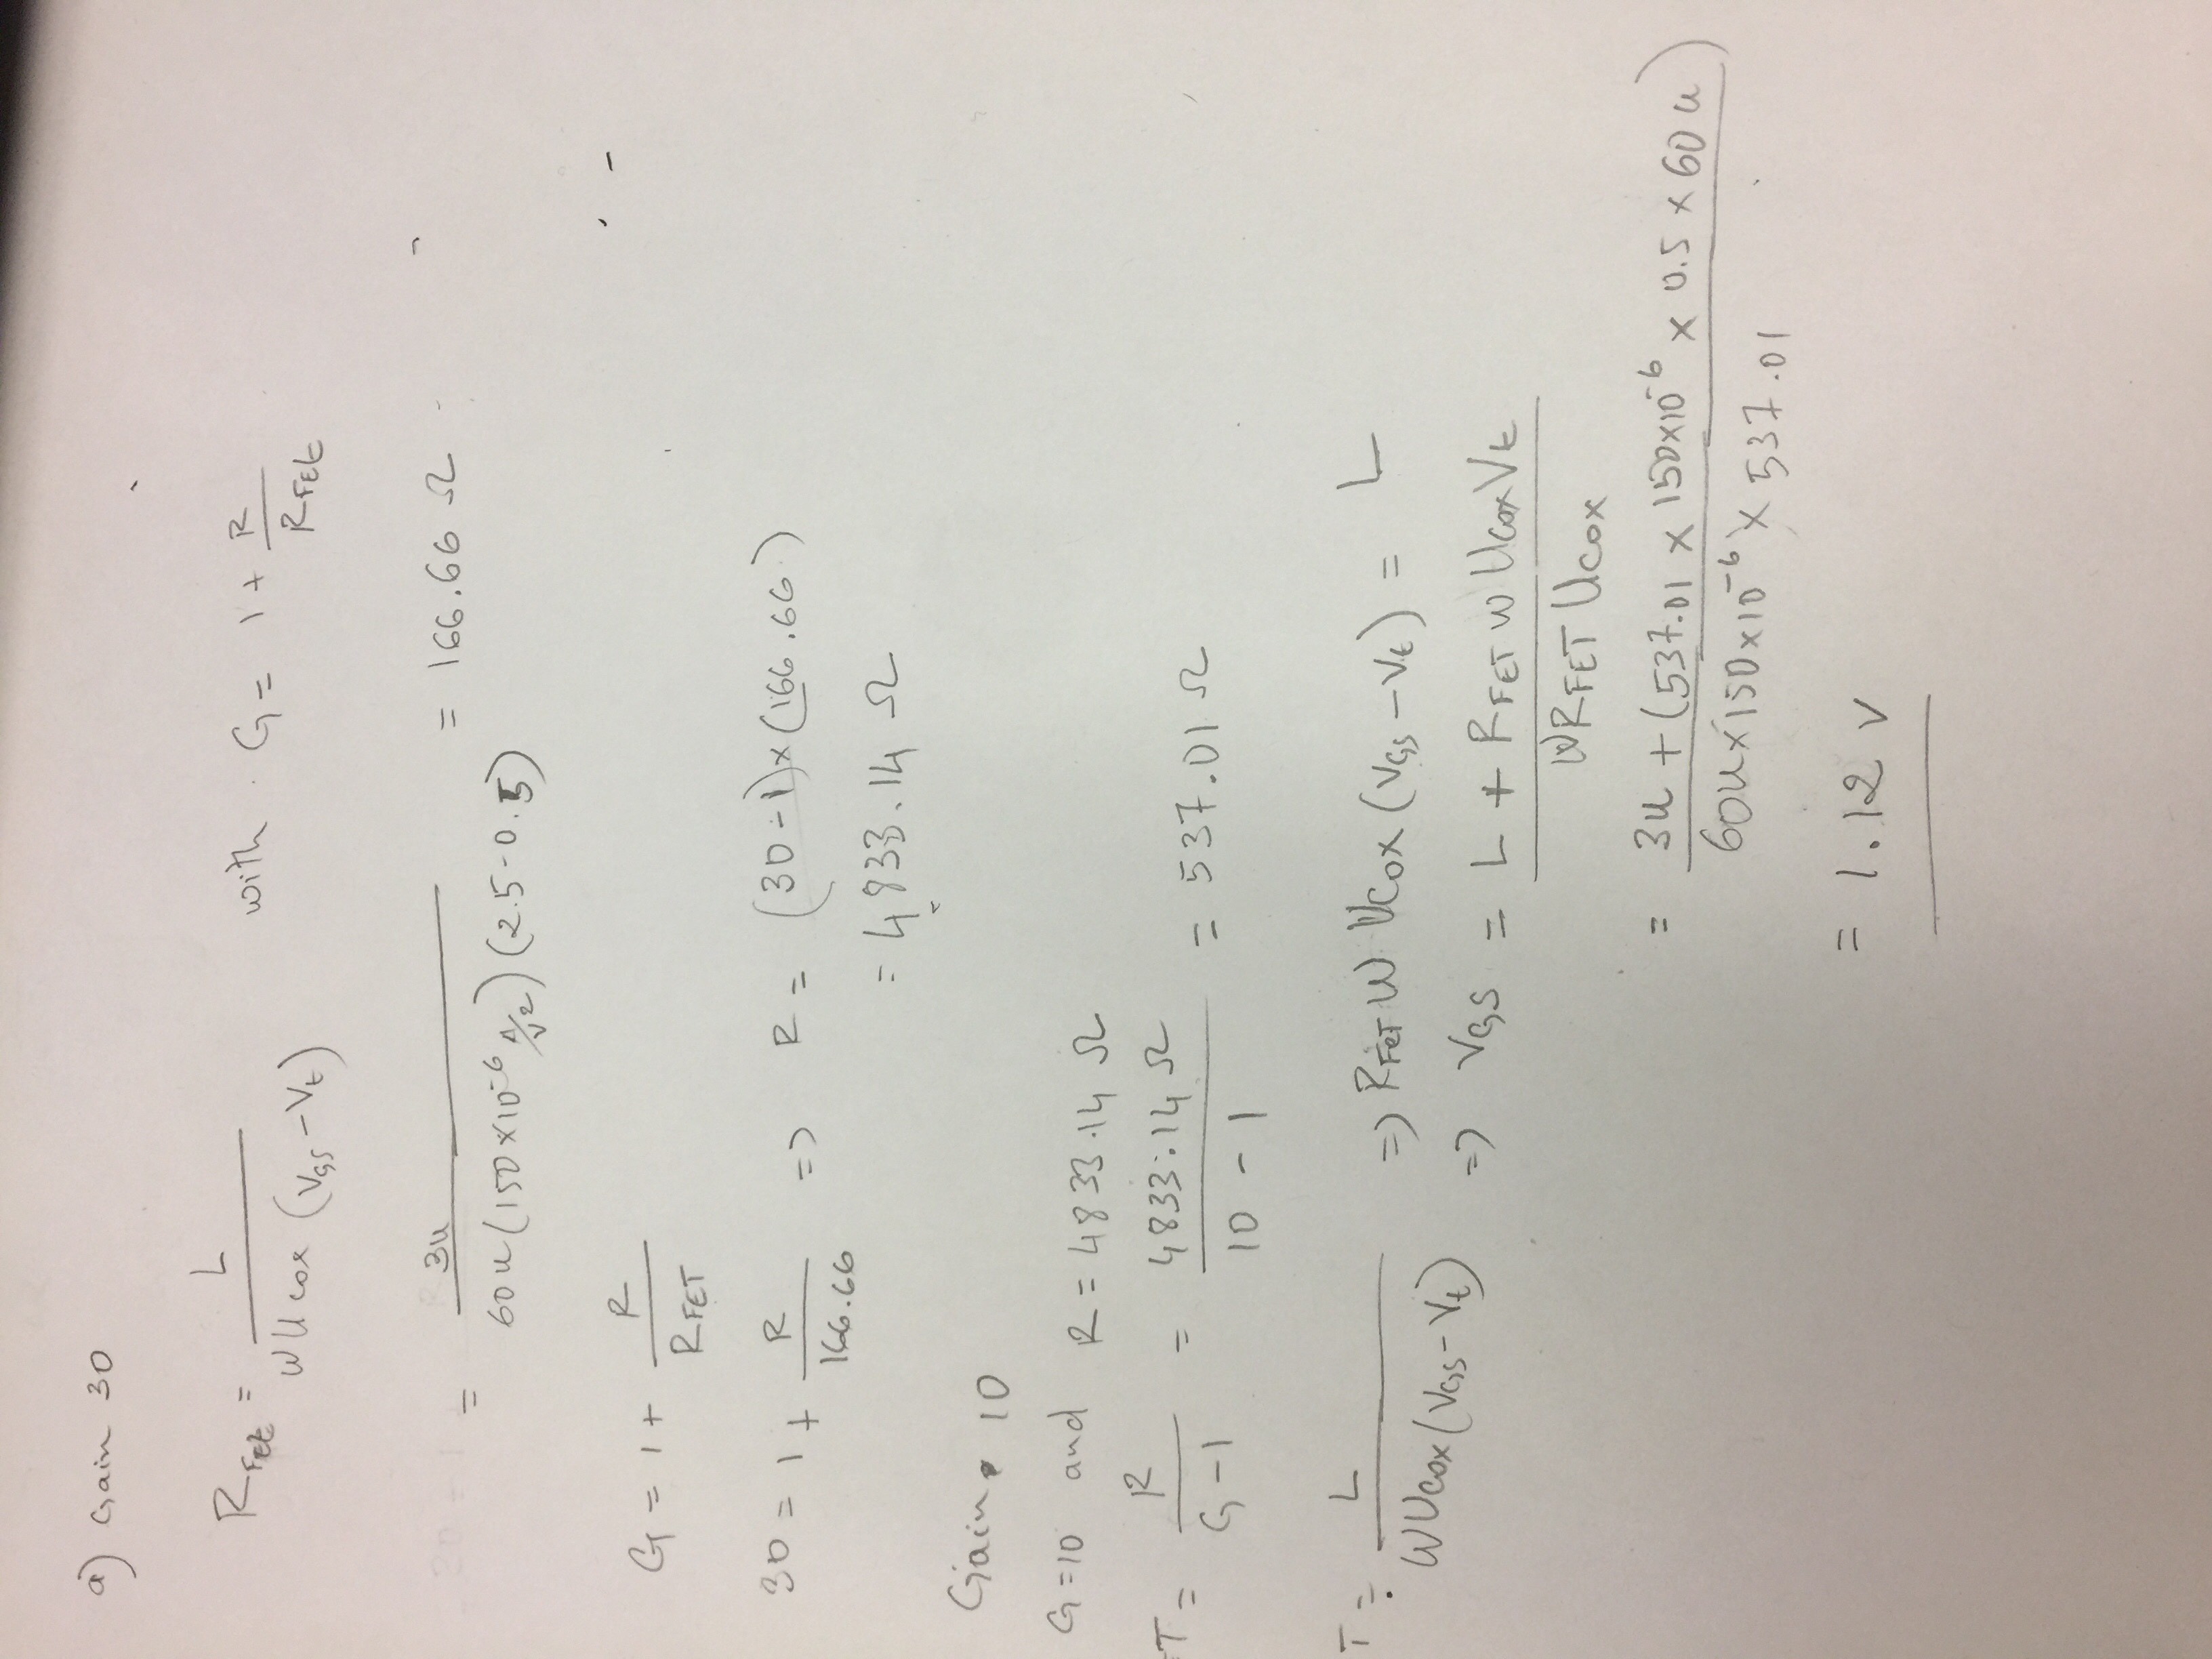 a) Gain 30
R_FEt = L / (W U cox (V_GS - V_t)) with G = 1 + R / R_FEt
= 3u / (60u (150 × 10^-6 A/V^2) (2.5 - 0.5)) = 166.66 Ω
G = 1 + R / R_FET
30 = 1 + R / 166.66 => R = (30 - 1) × (166.66)
= 4833.14 Ω
Gain 10
G = 10 and R = 4833.14 Ω
T = R / (G - 1) = 4833.14 Ω / (10 - 1) = 537.01 Ω
T = L / (W U cox (V_GS - V_t)) => R_FET W U cox (V_GS - V_t) = L
=> V_GS = (L + R_FET W U cox V_t) / (W R_FET U cox)
= (3u + (537.01 × 150×10^-6 × 0.5 × 60u)) / (60u × 150×10^-6 × 537.01)
= 1.12 V